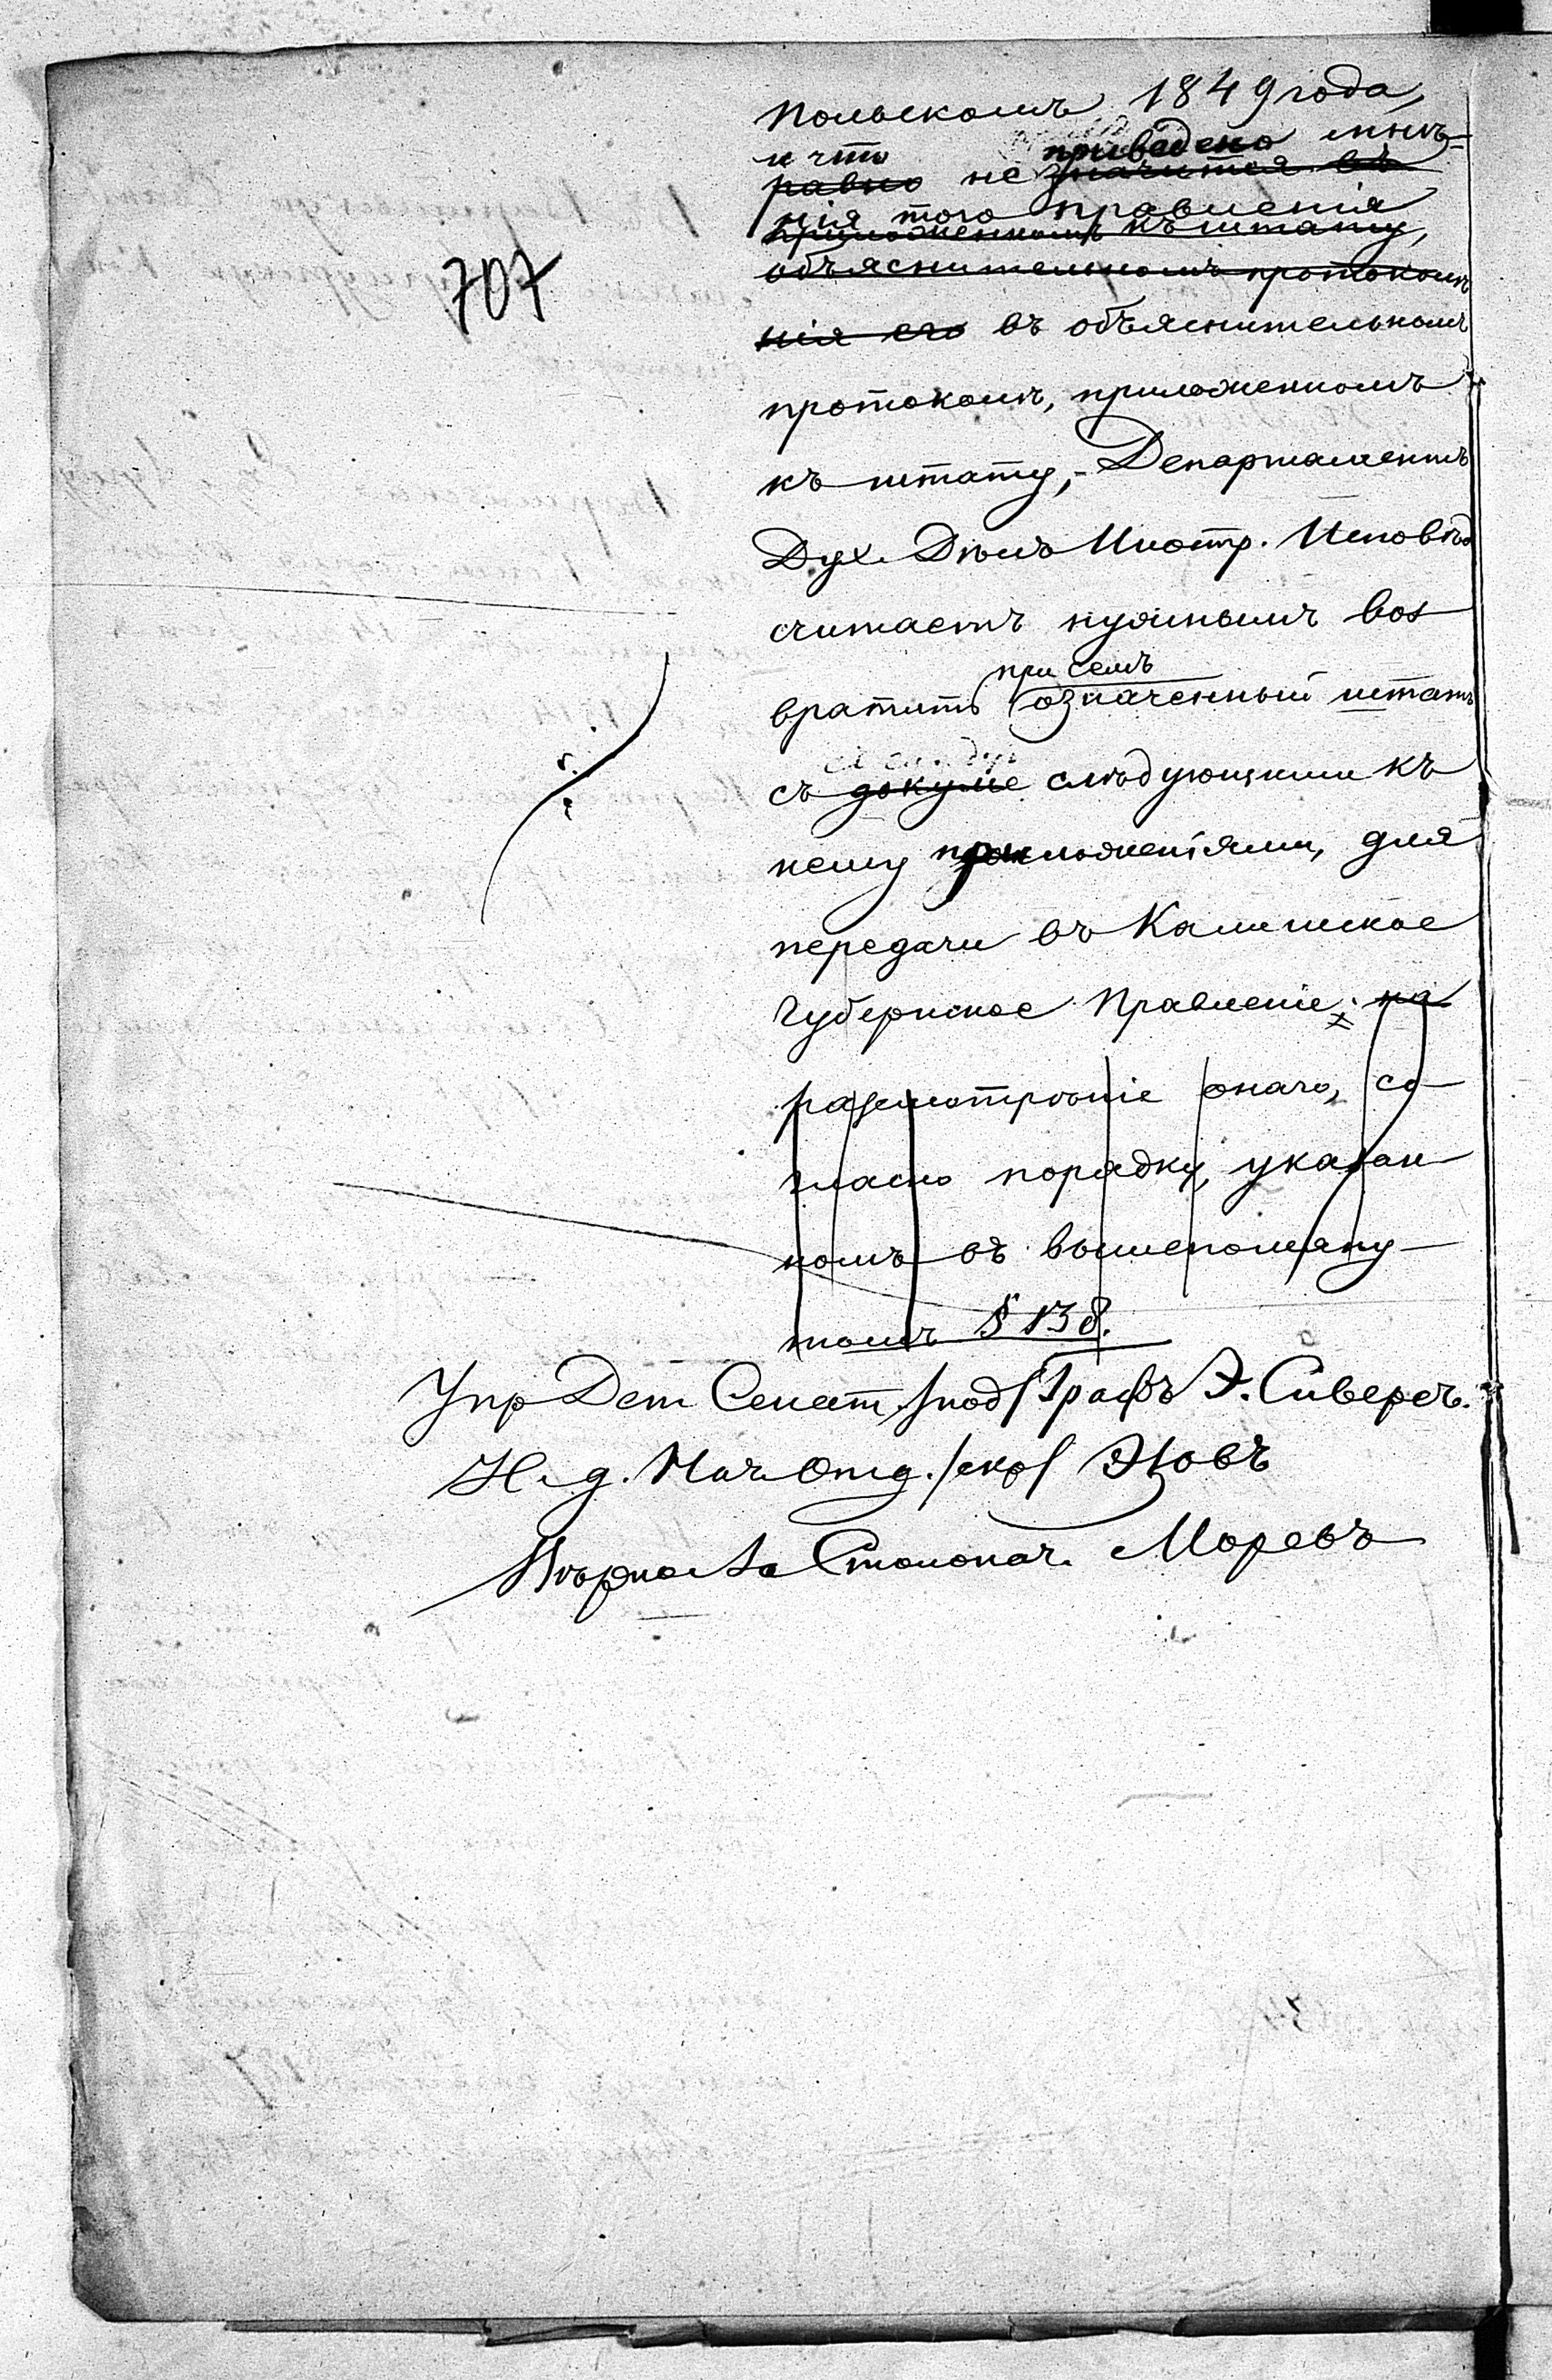 Польскомъ 1849 года,
и что приведено мнѣ-
равно не значится въ
нія того правленія
приложенномъ къ штату,
объяснительномъ протоколѣ
нія его въ объяснительномъ
протоколѣ, приложенномъ
къ штату, - Департаментъ
Дух. Дѣлъ Иностр. Исповѣд
считаетъ нужнымъ воз
при семъ
вратить означенный штатъ
съ докуме слѣдующими къ
нему приложеніями, для
передачи въ Калишское
Губернское Правленіе; на
разсмотрѣніе онаго, со-
гласно порядку, указан
номъ въ вышепомяну-
томъ § 138.
707
Упр Деп Сенат /под/ Графъ Э. Сиверсъ.
И. д. Нач Отд. /скр/ Эзовъ
Вѣрно За Столонач. Моревъ